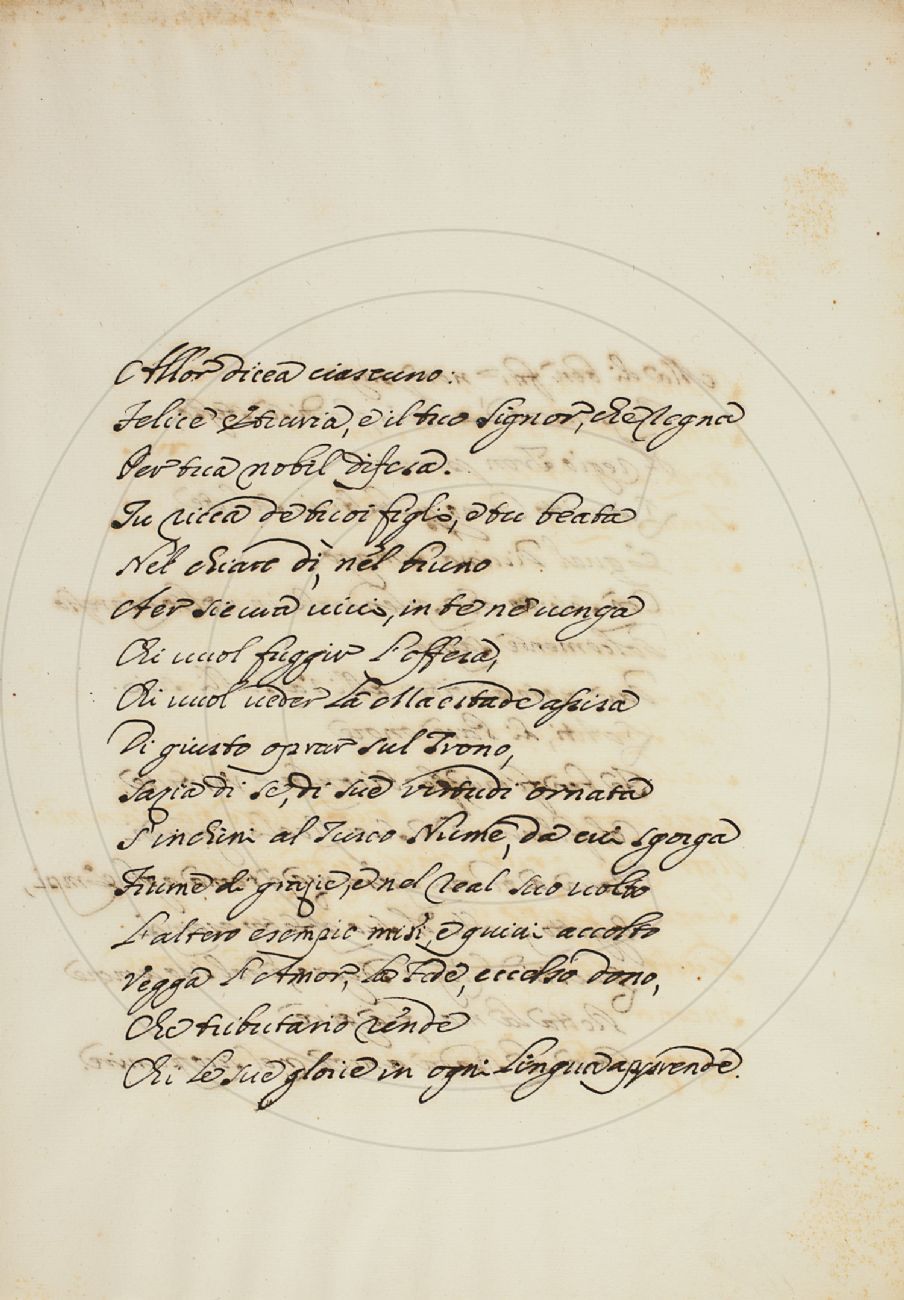 Allor dicea ciascuno:
Felice Etruria, e il tuo Signor, che Regna
Per tua nobil difesa.
Tu ricca de tuoi figli, e tu beata
Nel chiaro dì, nel bruno
Aer sicura vivi, in te ne venga
Chi vuol fuggir l'offesa,
Chi vuol veder la Maestade assisa
Di giusto oprar sul Trono,
Sazia di se, di sue virtudi ornata
S'inchini al Tusco Nume, da cui sgorga
Fiume di grazie, e nel real suo volto
L'altero esempio miri, e quivi accolto
Vegga l'Amor, la Fede, eccelso dono,
Che tributario rende
Chi le sue glorie in ogni lingua apprende.